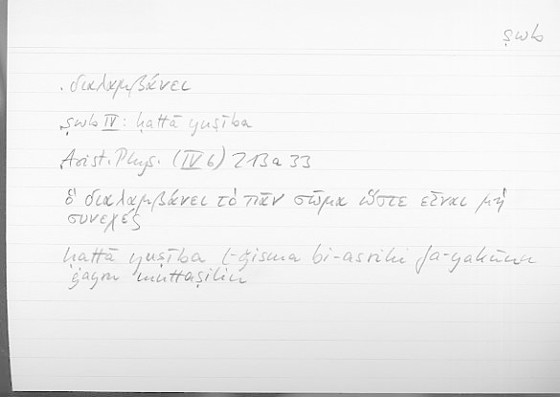 ṣwb
διαλαμβάνει
ṣwb IV: ḥattā yuṣība
Arist. Phys. (IV 6) 213 a 33
ὃ διαλαμβάνει τὸ πᾶν σῶμα ὥστε εἶναι μὴ
συνεχές
ḥattā yuṣība l-ǧisma bi-asrihi fa-yakūnu
ġayra muttaṣilin